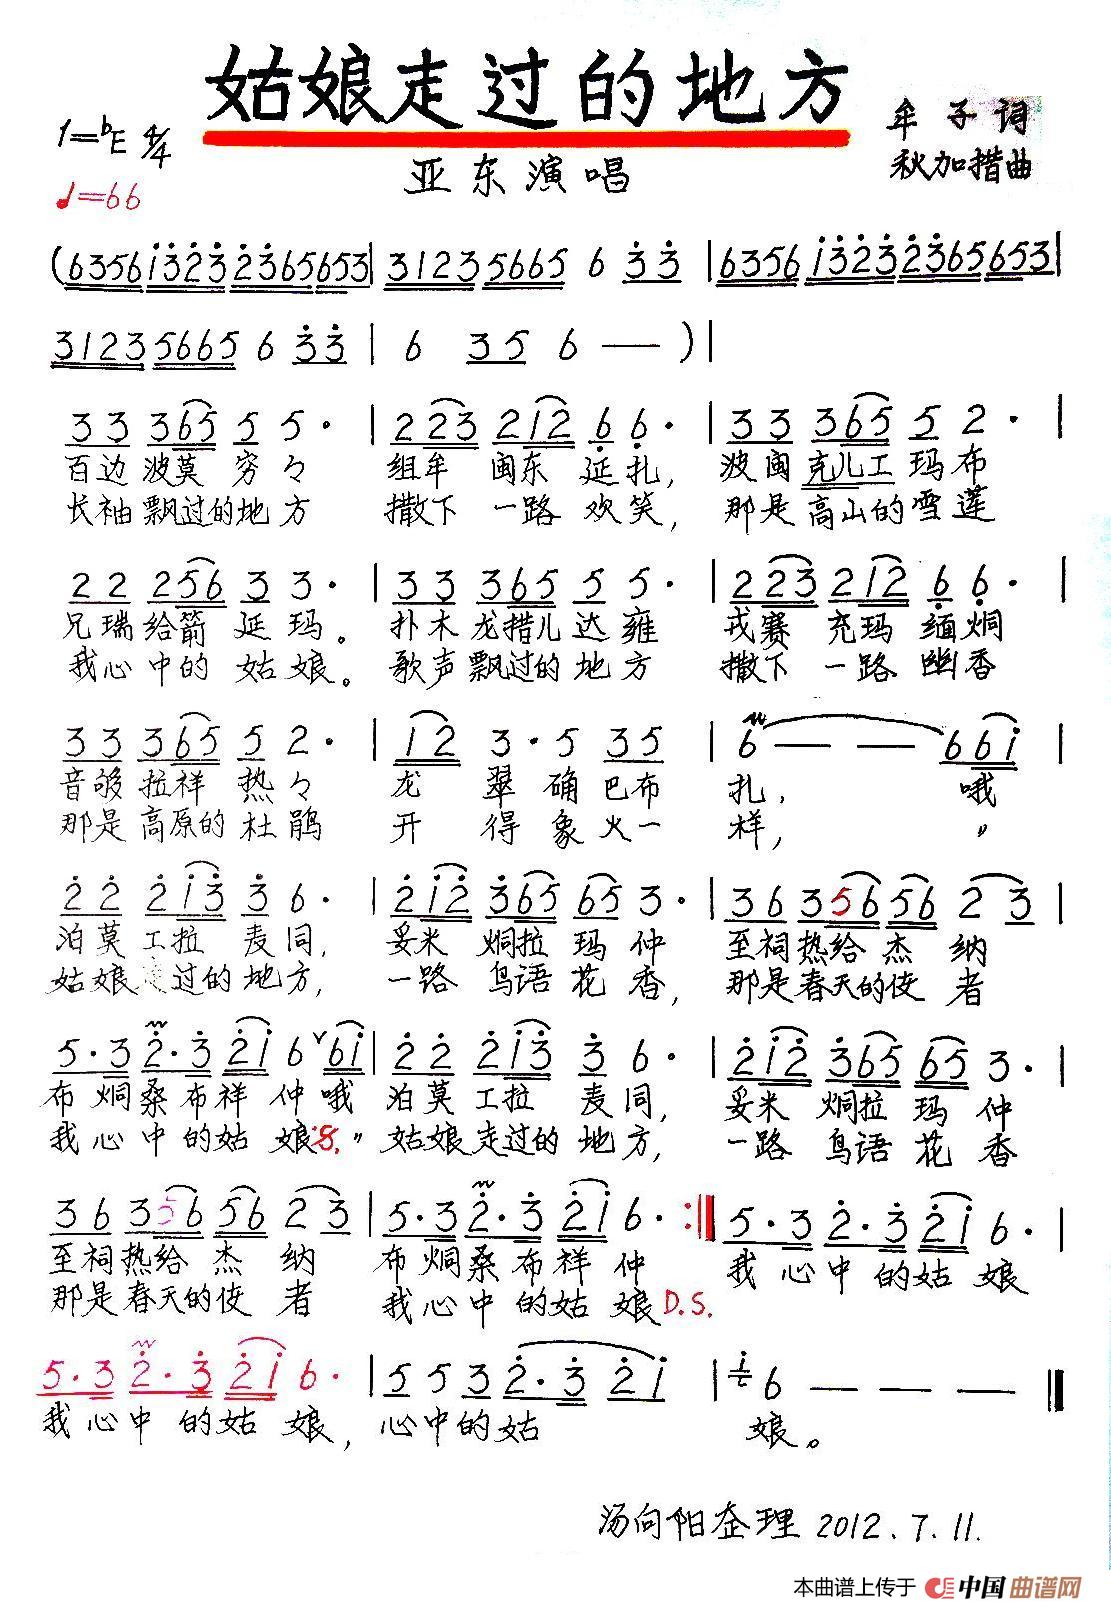 姑娘走过的地方
1=♭E 4/4
牟子词
♩=66
亚东演唱
秋加措曲
(6356i323 2365653|31235665 6 33|6356i3232365653|
31235665 6 33| 6 35 6 — )|
33 365 5 5· | 223 212 6 6· | 33 365 5 2· |
百边波莫 穷々 组牟 闽东 延扎, 波闽克儿工玛布
长袖飘过的地方 撒下 一路 欢笑, 那是高山的雪莲
22 256 3 3· | 33 365 5 5· | 223 212 6 6· |
兄瑞给箭 延玛。 扑木龙措儿达雍 戎赛 充玛 缅炯
我心中的 姑娘。 歌声飘过的地方 撒下 一路 幽香
33 365 5 2· | 12 3·5 35 | 6 — — 66i |
音够拉祥 热々 龙 翠 确巴布 扎, 哦
那是高原的杜鹃 开 得 象火一 样, 〃
22 2i3 3 6· | 2i2 365 65 3· | 36356 56 2 3 |
泊莫工拉 麦同, 妥米 炯拉 玛 仲 至祠热给 杰 纳
姑娘走过的地方, 一路 鸟语 花 香, 那是春天的使 者
5·3 2·3 2i 6 ∨6i | 22 2i3 3 6· | 2i2 365 65 3· |
布 炯桑布祥 仲哦 泊莫工拉 麦同, 妥米 炯拉 玛 仲
我 心中 的姑 娘 〃 姑娘走过的 地方, 一路 鸟语 花 香
36356 56 2 3 | 5·3 2·3 2i 6· :‖ 5·3 2·3 2i 6· |
至祠热给 杰 纳 布 炯桑布祥 仲 我 心中 的姑 娘
那是春天的使 者 我心中 的姑 娘 D.S.
5·3 2·3 2i 6· | 5 5 3 2·3 2i | i 6 — — — ‖
我 心中 的姑 娘, 心中的姑 娘。
汤向阳整理 2012.7.11.
本曲谱上传于 中国曲谱网